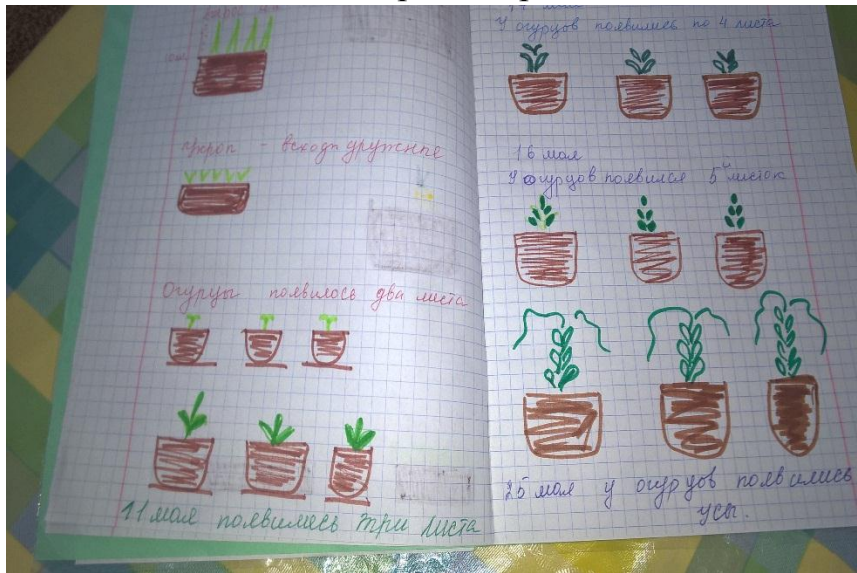 укроп - всходы дружные
Огурцы появилось два листа
11 мая появились три листа
мая
У огурцов появились по 4 листа
16 мая
У огурцов появился 5й листок
25 мая у огурцов появились
усы.